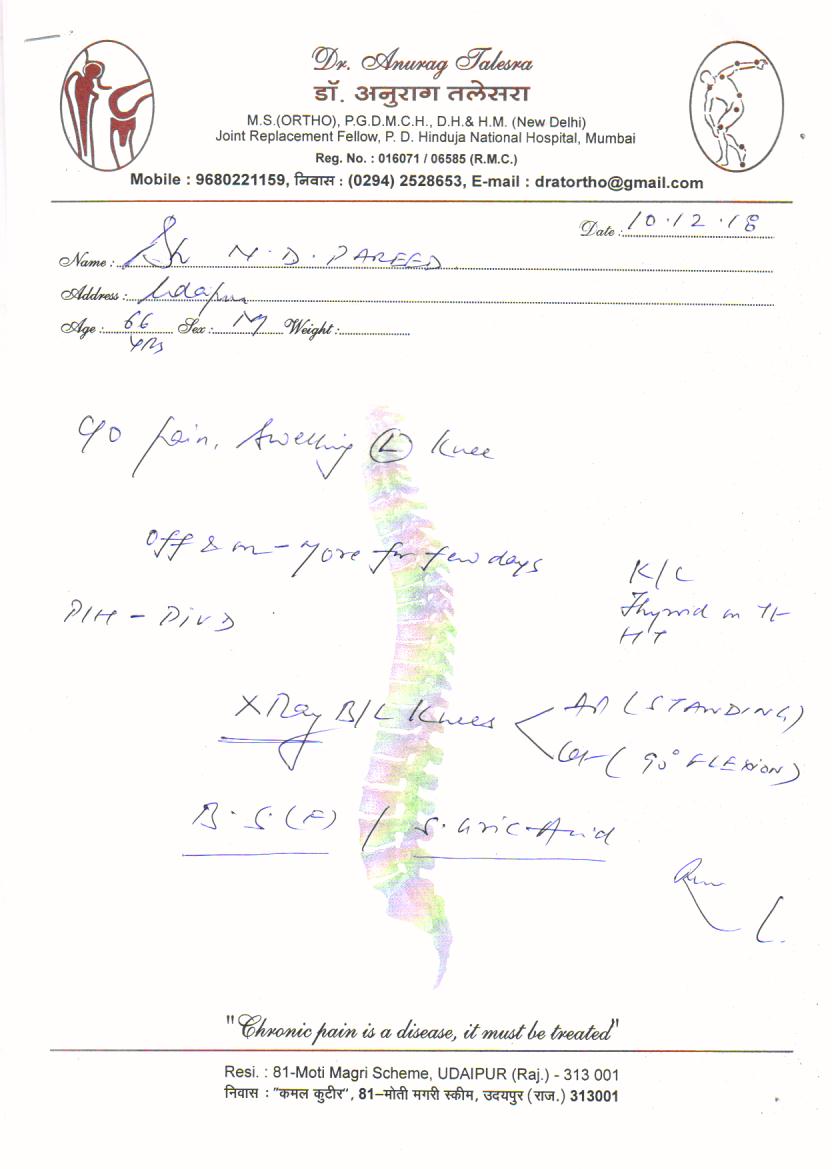 Dr. Anurag Talesra
डॉ. अनुराग तलेसरा
M.S.(ORTHO), P.G.D.M.C.H., D.H.& H.M. (New Delhi)
Joint Replacement Fellow, P. D. Hinduja National Hospital, Mumbai
Reg. No. : 016071 / 06585 (R.M.C.)
Mobile : 9680221159, निवास : (0294) 2528653, E-mail : dratortho@gmail.com
Date : 10.12.18
Name : Sh N.D. PAREED
Address : Udaipur
Age : 66 yrs Sex : M Weight :
C/o pain, swelling (L) Knee
Off & on - more for few days
K/C
Thyroid on Tt
HT
P/H - PIVD
X Ray B/L Knees AP (STANDING)
Lat (90° FLEXION)
B.S.(F) / S. Uric Acid
"Chronic pain is a disease, it must be treated"
Resi. : 81-Moti Magri Scheme, UDAIPUR (Raj.) - 313 001
निवास : "कमल कुटीर", 81–मोती मगरी स्कीम, उदयपुर (राज.) 313001